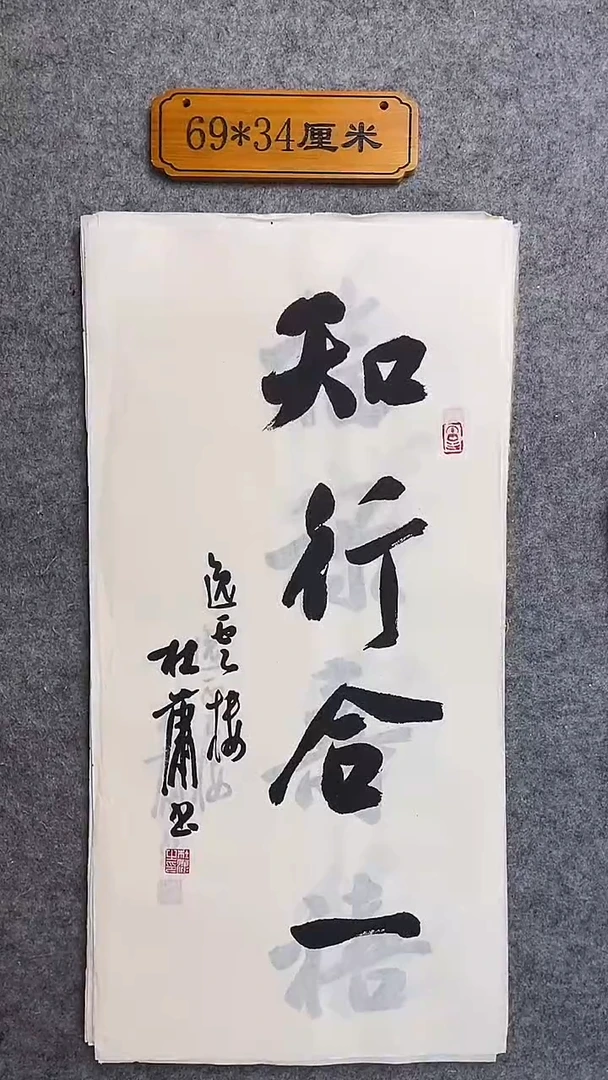 69*34厘米
知行合一
逸雲楼
杜萧书